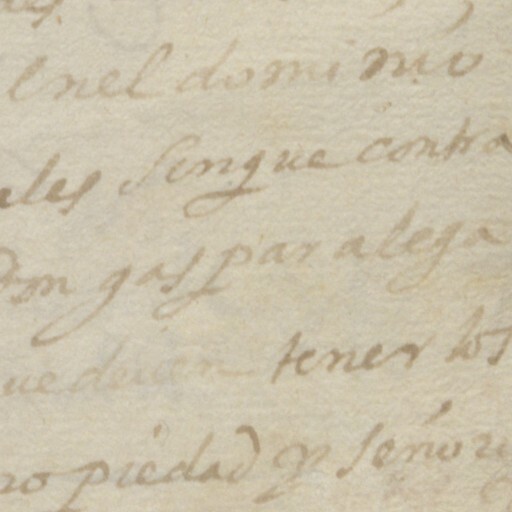 enel dominio
eles sinque contra
Don gaspar alega
uedeicen tener los
ropiedad y señori